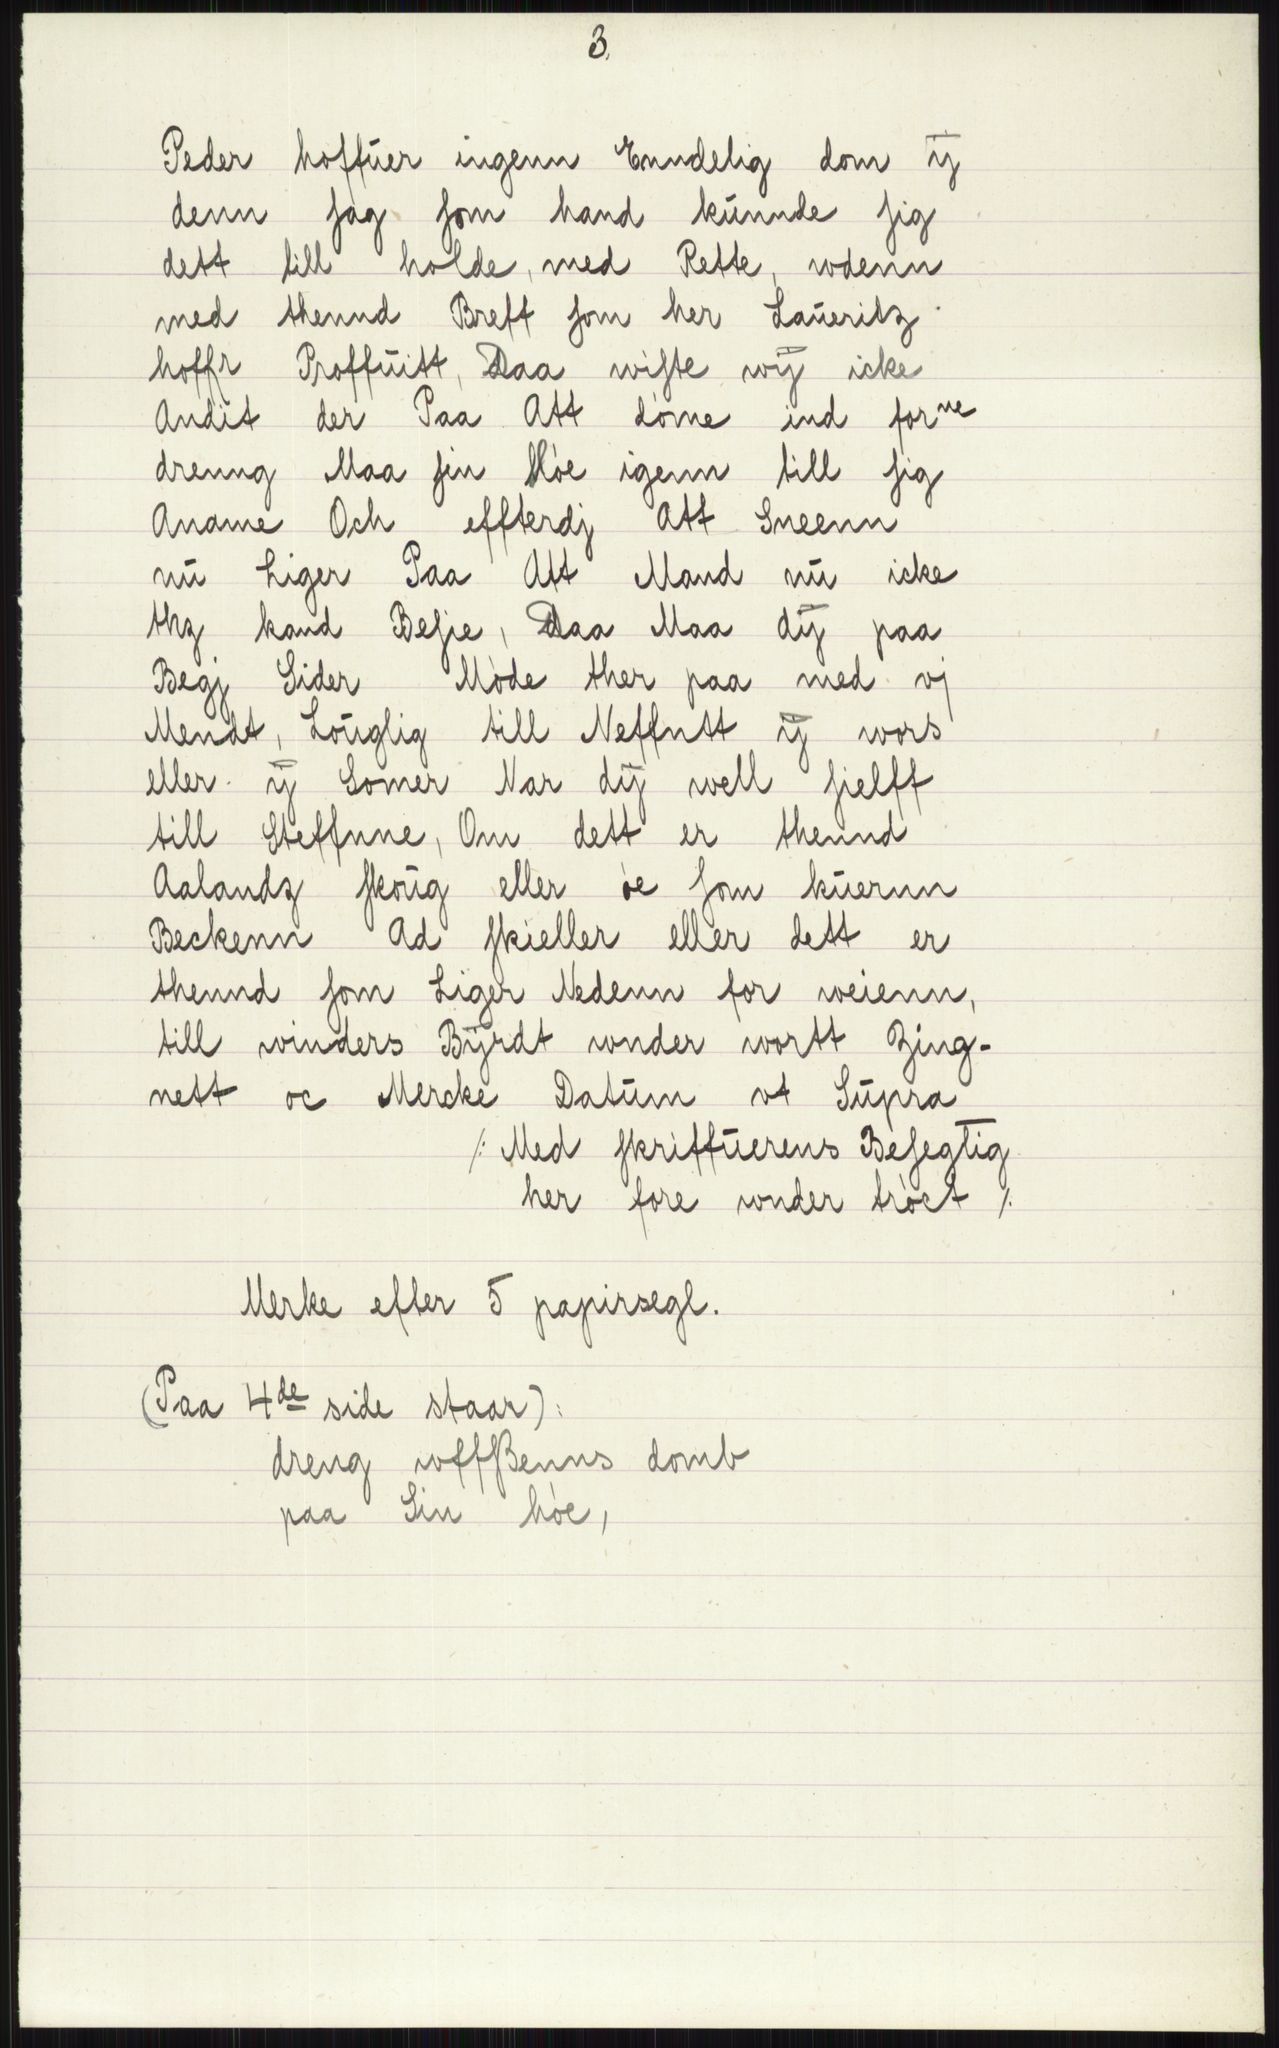 3.
Peder hoffuer ingenn Enndelig dom ÿ
denn sag som hand kunnde sig
dett till holde, med Rette, wdenn
med thennd Breff som her Laueritz
hoffr Proffuitt, Daa wiste wÿ icke
Andit der Paa Att dóme ind forne
dreng Maa sin Hóe igenn till sig
Aname Och effterdj Att Sneenn
nu Liger Paa Att Mand nu icke
thz kand Besje, Daa Maa dÿ paa
Begj Sider Móde ther paa med vj
Mendt, Louglig till Neffntt ÿ wors
eller ÿ Somer Nar dÿ well sielff
till Steffnne, Om dett er thennd
Aalandz skoug eller óe som kuernn
Beckenn Ad skieller eller dett er
thennd som Liger Nedenn for weienn,
till winders Býrdt wnder wortt Zing-
nett oc Mercke Datum vt Supra
/: Med skriffuerens Besegtig
her fore wnder tróct /:
Merke efter 5 papirsegl.
(Paa 4de side staar):
dreng wffssenns domb
paa Sin hóe,